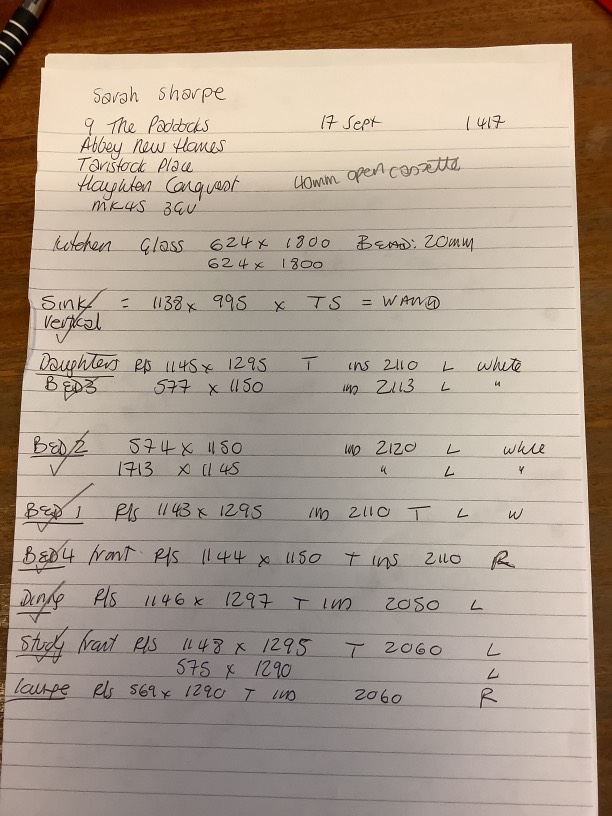 Sarah Sharpe
9 The Paddocks 17 Sept 1417
Abbey New Homes
Tavistock Place
Haughton Conquest 40mm open cassette
MK45 3GU
Kitchen Glass 624 x 1800 BEAD: 20mm
624 x 1800
Sink = 1138 x 995 x TS = WAND
Vertical
Daughters R/S 1145 x 1295 T ins 2110 L white
BED 3 577 x 1150 ins 2113 L "
BED 2 574 x 1150 ins 2120 L white
1713 x 1145 " L "
BED 1 R/S 1143 x 1295 ins 2110 T L W
BED 4 front R/S 1144 x 1150 T ins 2110 R
Dining R/S 1146 x 1297 T ins 2050 L
Study front R/S 1148 x 1295 T 2060 L
575 x 1290 L
Lounge R/S 569 x 1290 T ins 2060 R